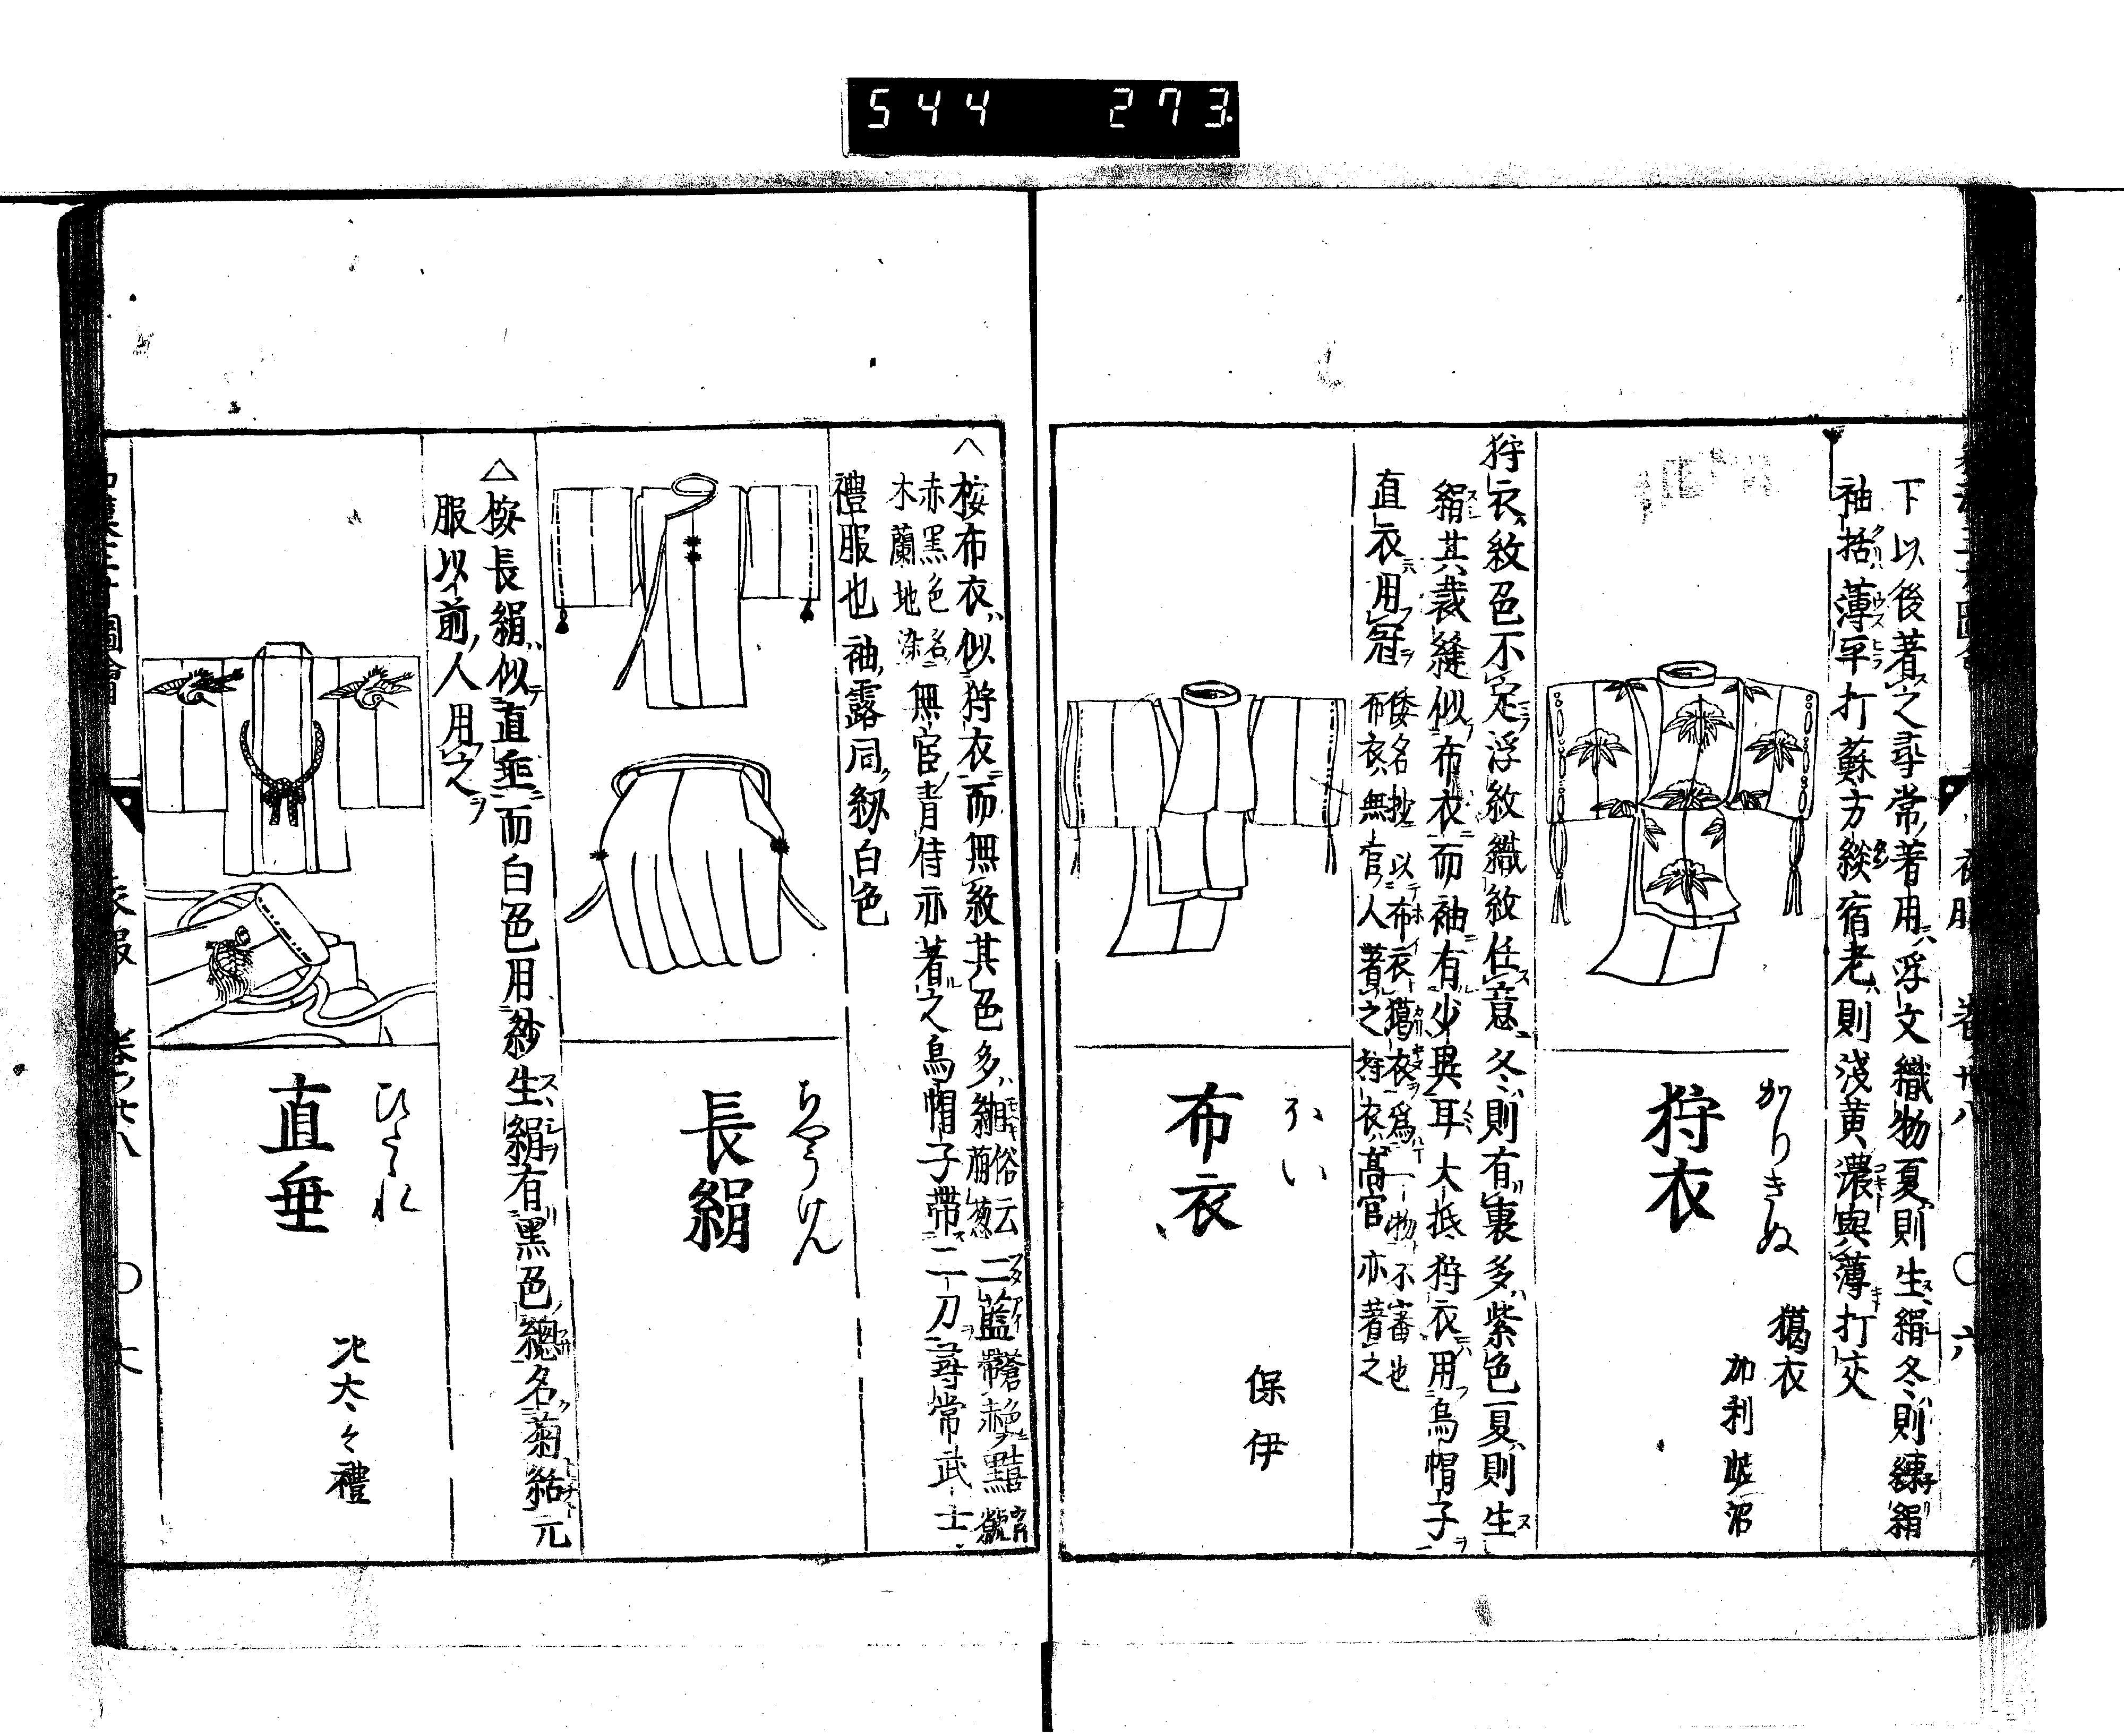 544 273
下以後著之尋常著用浮文織物夏則生絹冬則練絹
袖括薄平打蘇方緂宿老則浅黄濃與薄打交
狩衣
かりきぬ
獦衣
加利岐沼
狩衣紋色不定浮紋織紋任意冬則有裏多紫色夏則生
絹其裁縫似布衣而袖有少異耳大抵狩衣用烏帽子
直衣用冠
倭名抄以布衣獦衣爲一物不審也
布衣無官人著之狩衣高官亦著之
布衣
ほい
保伊
△按布衣似狩衣而無紋其色多
俗云
萠葱
二藍
赤黒色名
木蘭地染
無官青侍亦著之烏帽子帶二刀尋常武士
禮服也袖露同級白色
長絹
ちやうけん
△按長絹似直垂而白色用紗生絹有黒色總名菊結元
服以前人用之
直垂
ひたゝれ
比太々禮
衣服 卷ノ廿八 〇六